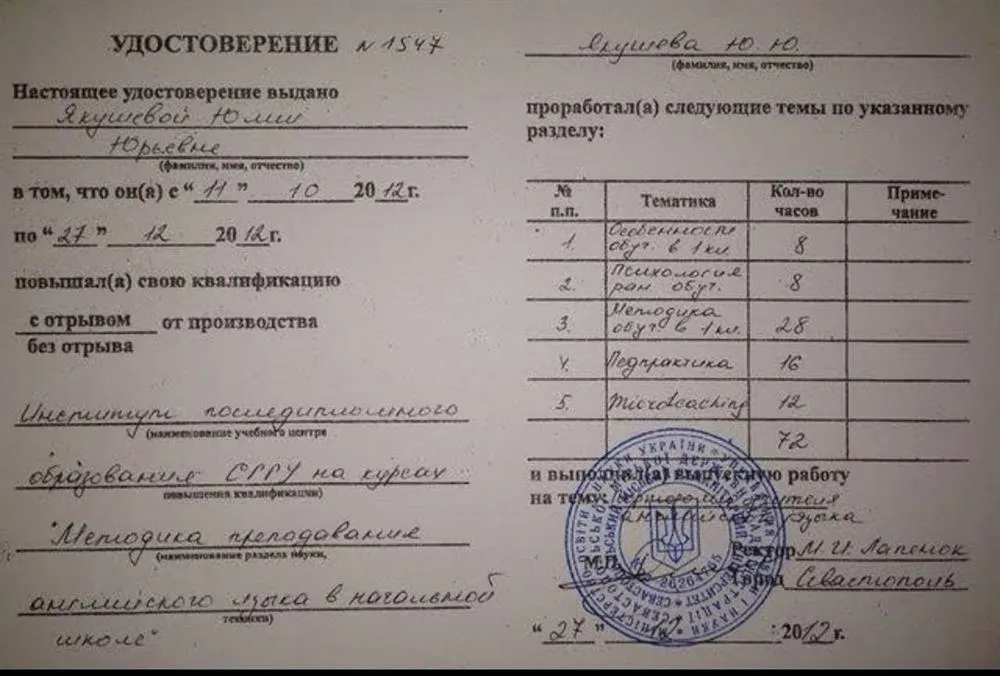 УДОСТОВЕРЕНИЕ N 1547
Настоящее удостоверение выдано
Якушевой Юлии
Юрьевне
(фамилия, имя, отчество)
в том, что он(а) с “ 11 ” 10 2012г.
по “ 27 ” 12 2012г.
повышал(а) свою квалификацию
с отрывом от производства
без отрыва
Институт последипломного
(наименование учебного центра
образования СГГУ на курсах
повышения квалификации)
"Методика преподавания
(наименование раздела науки,
английского языка в начальной
техники)
школе"
Якушева Ю. Ю.
(фамилия, имя, отчество)
проработал(а) следующие темы по указанному
разделу:
№ п.п. Тематика Кол-во часов Приме-чание
1. Особенности обуч. в 1 кл. 8
2. Психология ран. обуч. 8
3. Методика обуч. в 1 кл. 28
4. Педпрактика 16
5. Microteaching 12
72
и выполнил(а) выпускную работу
на тему: учителя
английского языка
Ректор М. И. Лапенок
М.П.
Город Севастополь
“ 27 ” 12 2012 г.
26264905